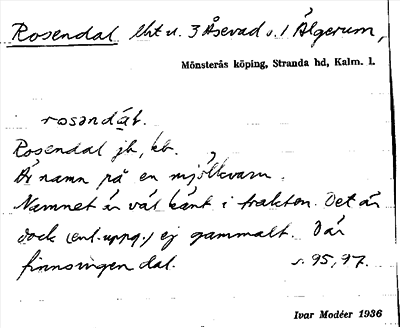 Rosendal lht u. 3 Åsevad o. 1 Älgerum,
Mönsterås köping, Stranda hd, Kalm. l.
rosəndɑ̀t.
Rosendal jb, kb.
Är namn på en mjölkvarn.
Namnet är väl känt i trakten. Det är
dock (enl. uppg.) ej gammalt. Där
finns ingen dal. s. 95, 97.
Ivar Modéer 1936